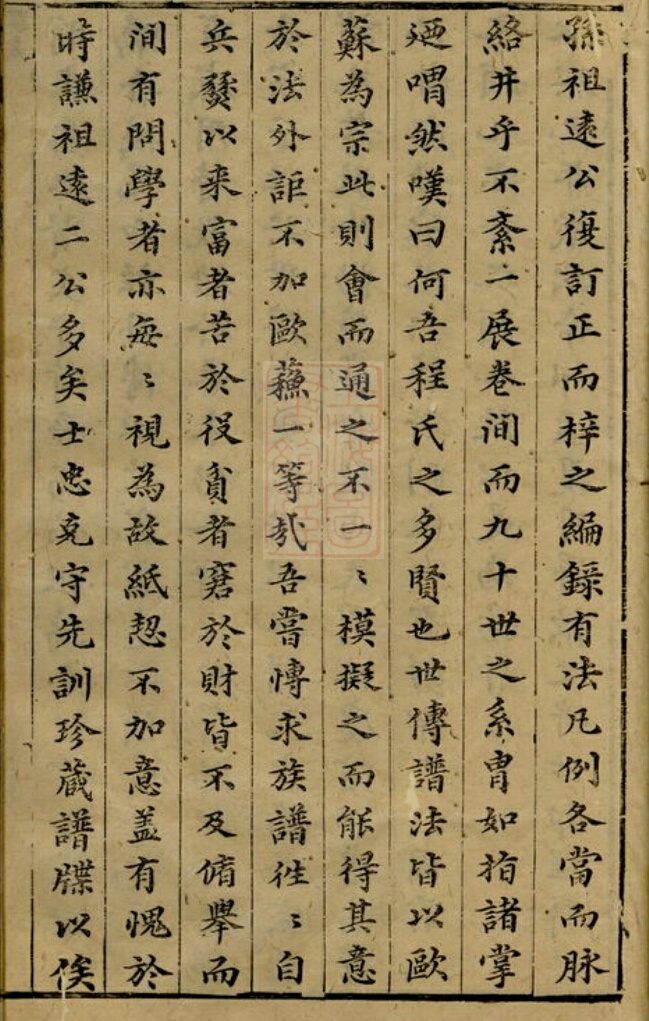 孫祖遠公復訂正而梓之編錄有法凡例各當而脉
絡井乎不紊一展卷間而九十世之系胄如指諸掌
廼喟然嘆曰何吾程氏之多賢也世傳譜法皆以歐
蘇為宗此則會而通之不一〻模擬之而能得其意
於法外詎不加歐蘓一等㢤吾嘗慱求族譜徃〻自
兵燹以来富者苦於役貧者窘於財皆不及脩舉而
間有問學者亦每〻視為故紙恝不加意盖有愧於
時謙祖遠二公多矣士忠克守先訓珍蔵譜牒以俟